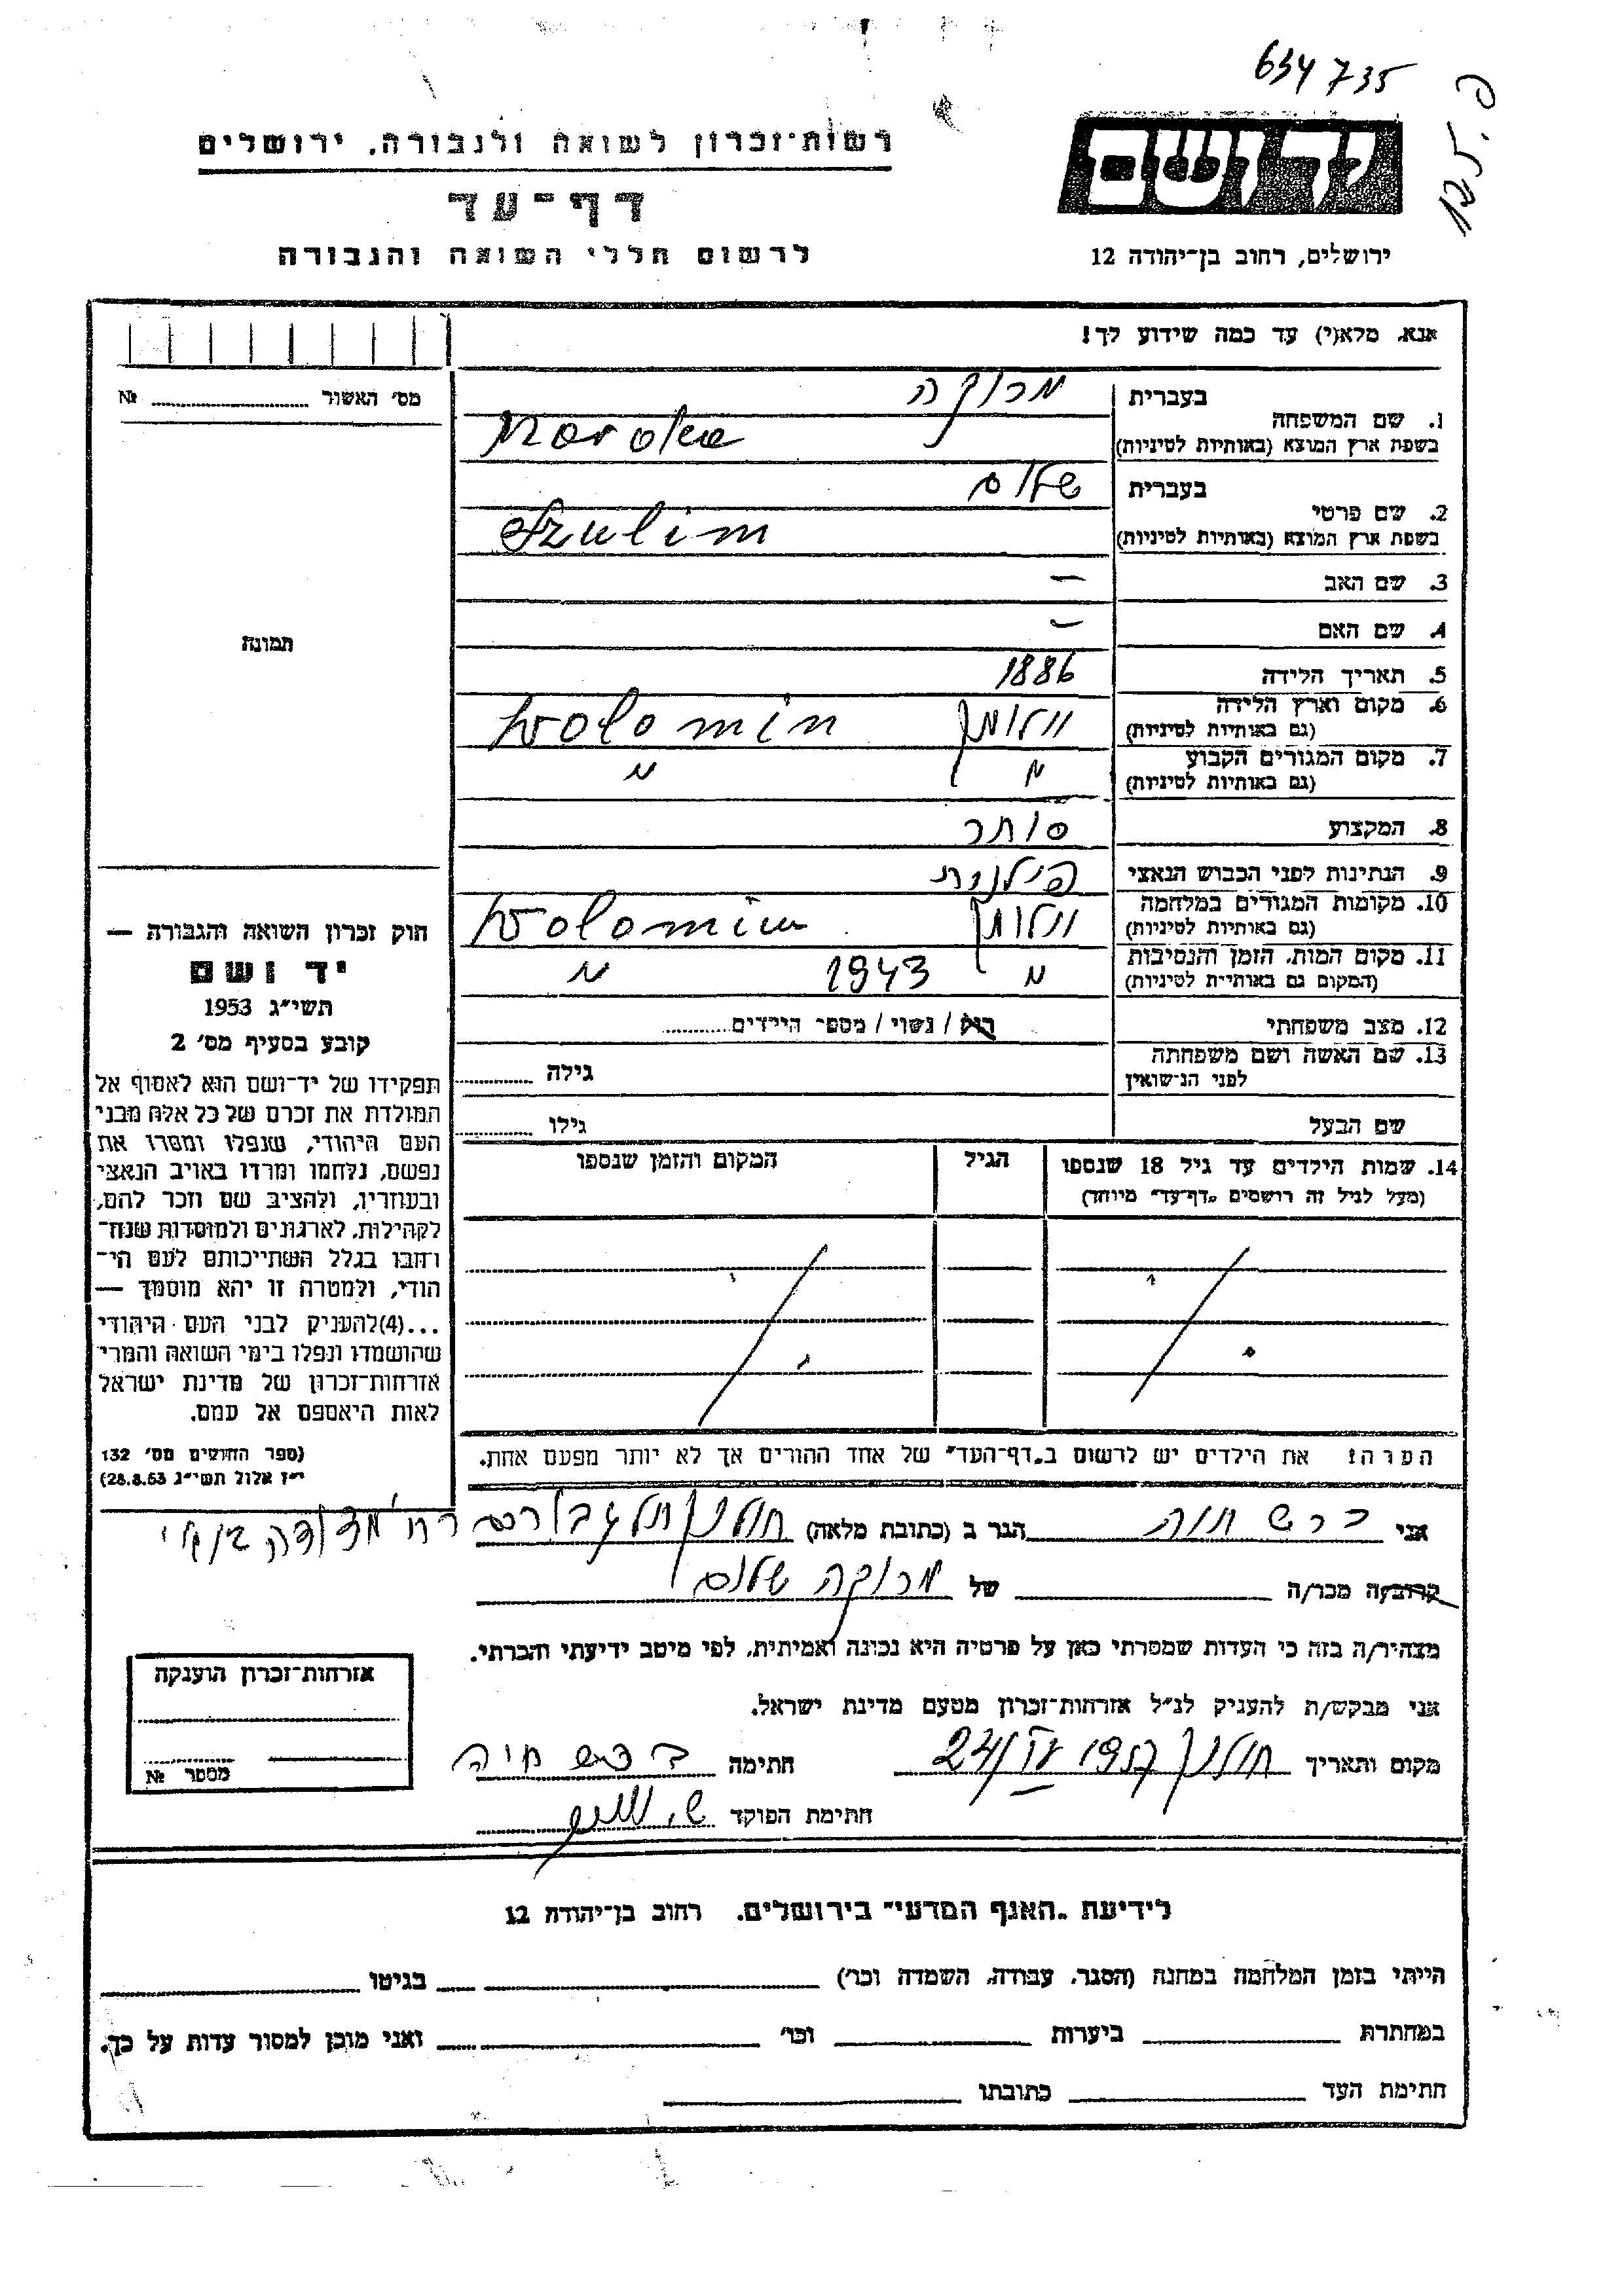 634735
125.פ
רשות־זכרון לשואה ולגבורה, ירושלים
דף־עד
לרשום חללי השואה והגבורה
ידושם
ירושלים, רחוב בן־יהודה 12
אנא, מלא(י) עד כמה שידוע לך!
מס׳ האשור №
1. שם המשפחה
בעברית מרוקה
בשפת ארץ המוצא (באותיות לטיניות) Maroka
2. שם פרטי
בעברית שלום
בשפת ארץ המוצא (באותיות לטיניות) Szulim
3. שם האב —
4. שם האם —
תמונה
5. תאריך הלידה 1886
6. מקום וארץ הלידה (גם באותיות לטיניות) וולומין Wolomin
7. מקום המגורים הקבוע (גם באותיות לטיניות) " "
8. המקצוע סוחר
9. הנתינות לפני הכבוש הנאצי פולנית
10. מקומות המגורים במלחמה (גם באותיות לטיניות) וולומין Wolomin
11. מקום המות, הזמן והנסיבות (המקום גם באותיות לטיניות) " 1943 "
12. מצב משפחתי רוק / נשוי / מספר הילדים
13. שם האשה ושם משפחתה לפני הנשואין גילה
שם הבעל גילו
14. שמות הילדים עד גיל 18 שנספו (מעל לגיל זה רושמים „דף־עד״ מיוחד) הגיל המקום והזמן שנספו
הערה: את הילדים יש לרשום ב„דף־העד״ של אחד ההורים אך לא יותר מפעם אחת.
חוק זכרון השואה והגבורה —
יד ושם
תשי״ג 1953
קובע בסעיף מס׳ 2
תפקידו של יד־ושם הוא לאסוף אל
המולדת את זכרם של כל אלה מבני
העם היהודי, שנפלו ומסרו את
נפשם, נלחמו ומרדו באויב הנאצי
ובעוזריו, ולהציב שם וזכר להם,
לקהילות, לארגונים ולמוסדות שנח־
רחבו בגלל השתייכותם לעם הי־
הודי, ולמטרה זו יהא מוסמך —
...(4)להעניק לבני העם היהודי
שהושמדו ונפלו בימי השואה והמרי
אזרחות־זכרון של מדינת ישראל
לאות היאספם אל עמם.
(ספר החוקים מס׳ 132
י״ז אלול תשי״ג 28.8.53)
אני ברש חיה הגר ב (כתובת מלאה) חולון
קרוב/ה מכר/ה של מרוקה שלום
מצהיר/ה בזה כי העדות שמסרתי כאן על פרטיה היא נכונה ואמיתית, לפי מיטב ידיעתי והכרתי.
אני מבקש/ת להעניק לנ״ל אזרחות־זכרון מטעם מדינת ישראל.
מקום ותאריך חולון 1957 חתימה ברש חיה
חתימת הפוקד
אזרחות־זכרון הוענקה
מספר №
לידיעת „האגף המדעי״ בירושלים, רחוב בן־יהודה 12
הייתי בזמן המלחמה במחנה (הסגר, עבודה, השמדה וכר׳) בגיטו
במחתרת ביערות וכר׳ ואני מוכן למסור עדות על כך.
חתימת העד כתובתו